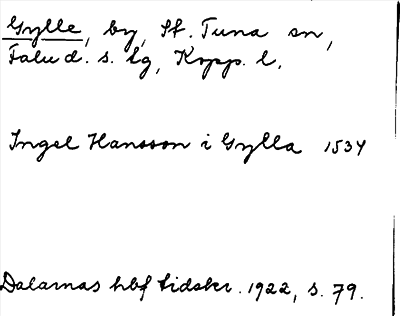 Gylle, by, St. Tuna sn,
Falu d. s. lg, Kopp. l.
Ingel Hansson i Gylla 1534
Dalarnas hbf tidskr. 1922, s. 79.